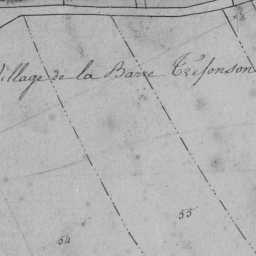 Village de la Barre Trésonson
55
54